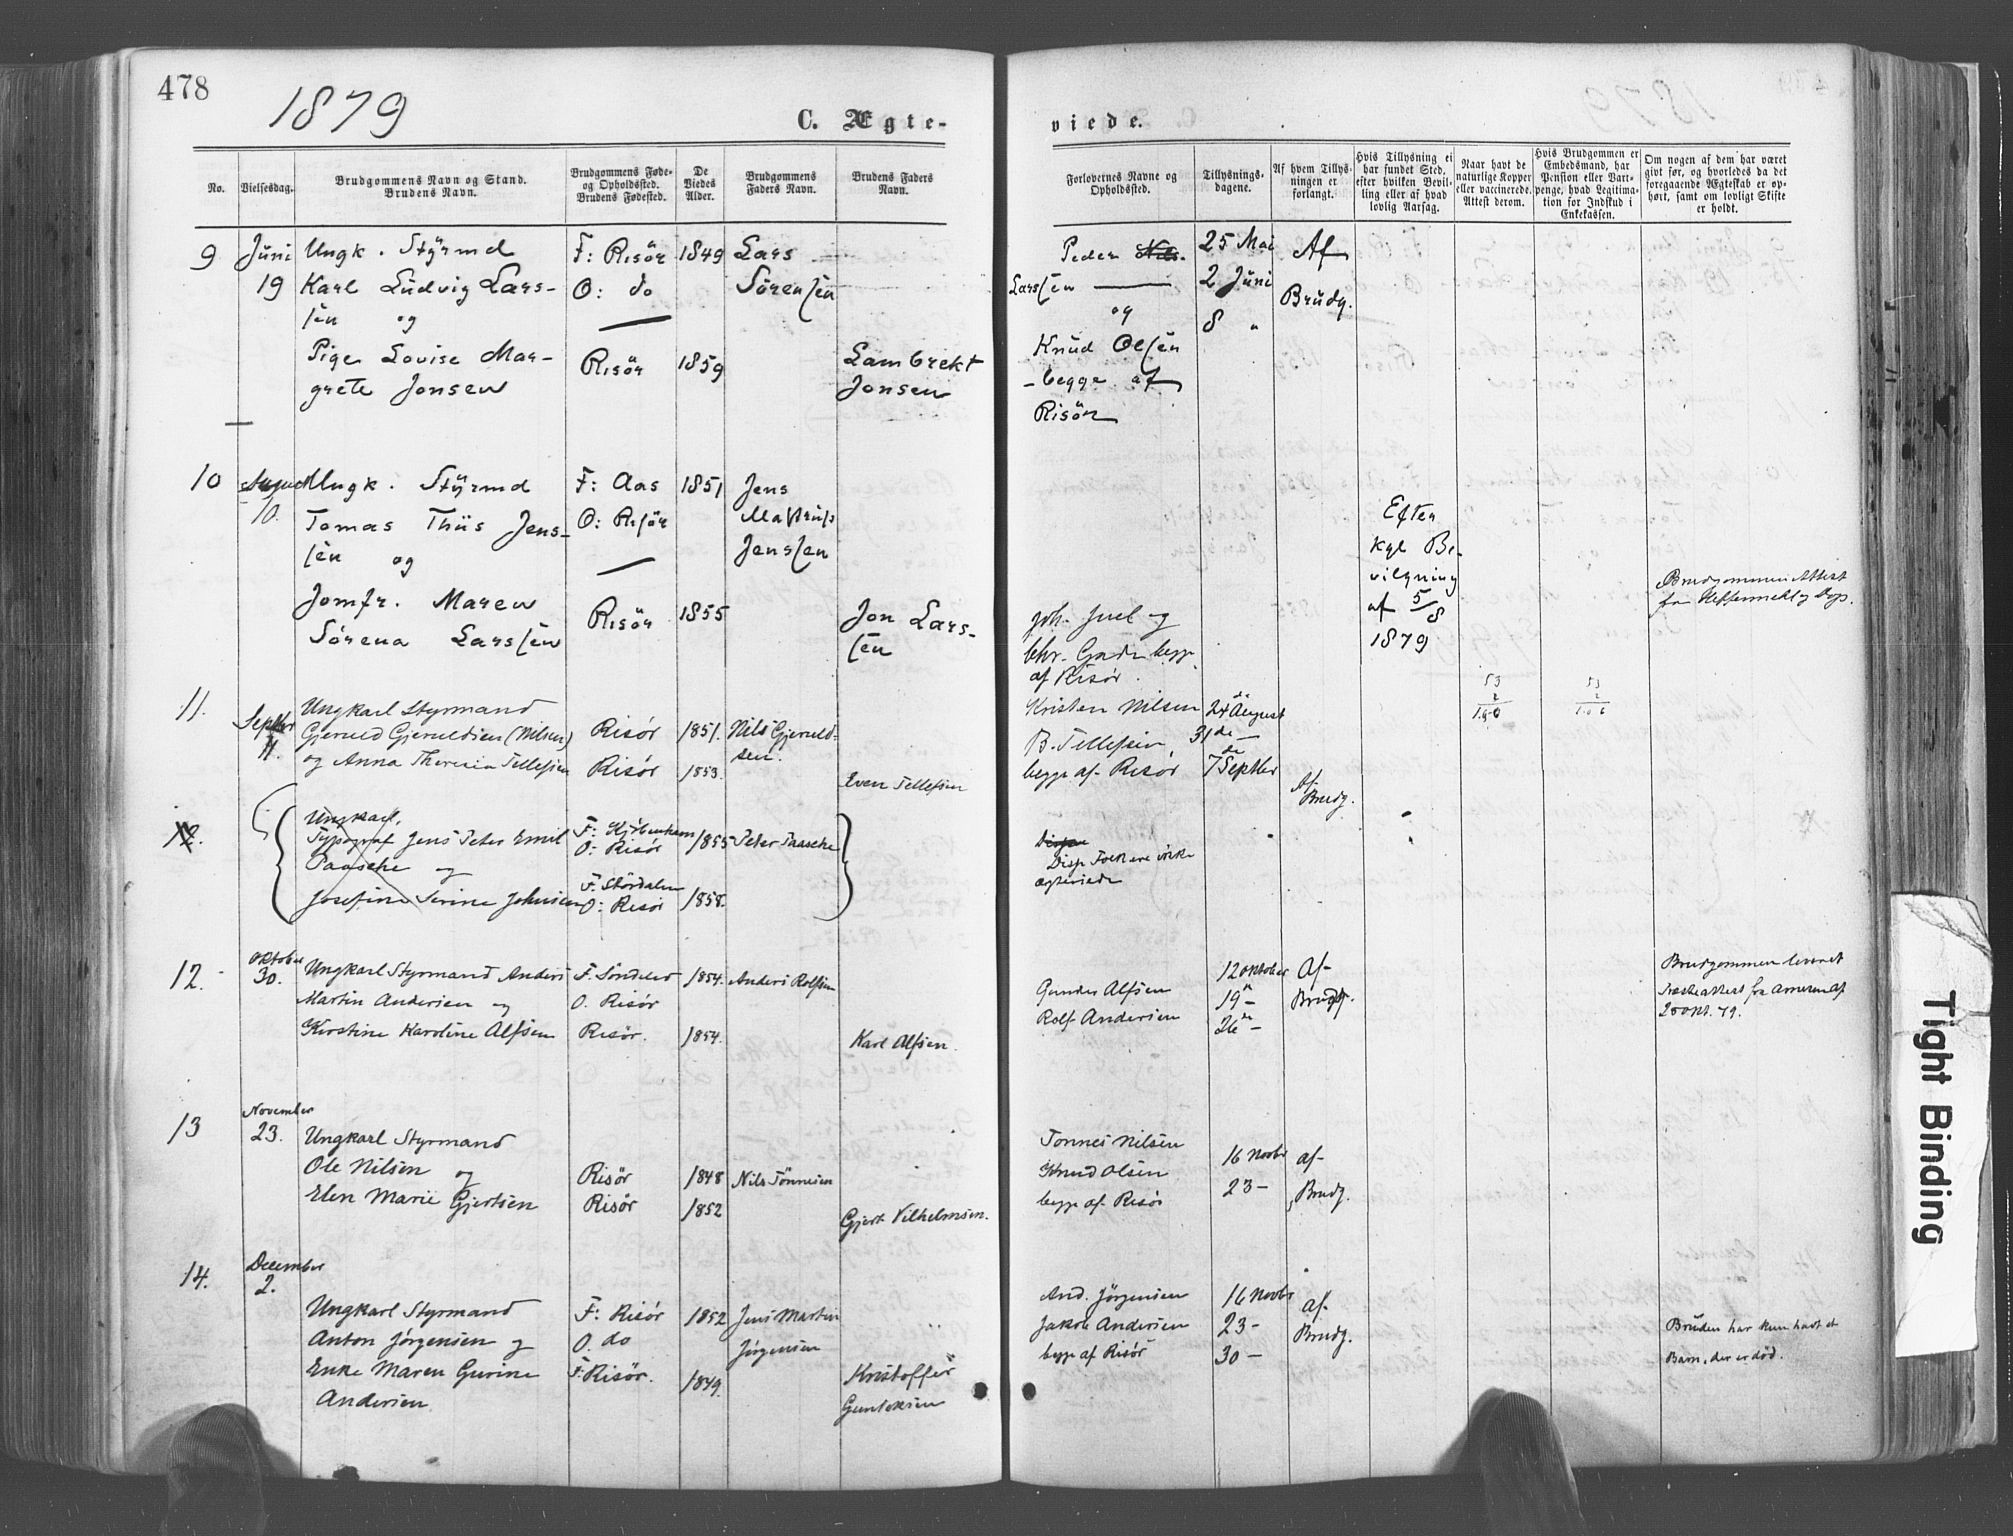 478
1879
C. Ægte-
viede.
No.
Vielsesdag.
Brudgommens Navn og Stand.
Brudens Navn.
Brudgommens Føde-
og Opholdssted.
Brudens Fødested.
De
Viedes
Alder.
Brudgommens
Faders Navn.
Brudens Faders
Navn.
Forlovernes Navne og
Opholdssted.
Tillysnings-
dagene.
Af hvem Tillys-
ningen er
forlangt.
Hvis Tillysning ei
har fundet Sted,
efter hvilken Bevil-
ling eller af hvad
lovlig Aarsag.
Naar havt de
naturlige Kopper
eller vaccinerede.
Attest derom.
Hvis Brudgommen er
Embedsmand, har
Pension eller Vart-
penge, hvad Legitima-
tion for Indskud i
Enkekassen.
Om nogen af dem har været
givt før, og hvorledes da det
foregaaende Ægteskab er op-
hørt, samt om lovligt Skifte
er holdt.
9
Juni
19
Ungk. Styrmd
Karl Ludvig Lars-
sen og
Pige Lovise Mar-
grete Jonsen
F: Risör
O: do
Risör
1849
1859
Lars
Sörensen
Lambrekt
Jonsen
Peder Nils.
Larssen
og
Knud Olsen
- begge af
Risör
25 Mai
2 Juni
8 "
Af
Brudg.
10
August
10.
Ungk. Styrmd
Tomas Thiis Jens-
sen og
Jomfr. Maren
Sörena Larssen
F: Aas
O: Risör
Risör
1851
1855
Jens
Jenssen
Jon Lars-
sen
Joh. Juel og
Chr. Gade begge
af Risör.
Efter
kgl Be-
vilgning
af 5/8
1879
Brudgommens Attest
11.
Septbr
11.
Ungkarl Styrmand
Gjeruld Gjeruldsen (Nilsen)
og Anna Theresia Tellefsen
Risör
Risör
1851.
1853.
Nils Gjeruld-
sen.
Even Tellefsen
Kristen Nilsen
B. Tellefsen,
begge af Risör
24de August
31de —
7de Septbr
Af
Brudg.
53
2
106
53
2
106
12.
Ungkarl,
Typograf Jens Peter Emil
Paasche og
Josefine Serine Johnsen
F: Kjöbenhavn
O: Risör
F. Stördalen
O: Risör
1855
1858.
Peter Paasche
Disp Folk ere ikke
ægteviede
12.
Oktober
30.
Ungkarl Styrmand Anders
Martin Andersen og
Kirstine Karoline Alfsen
F. Söndeled
O. Risör
Risör.
1854.
1854.
Anders Rolfsen
Karl Alfsen.
Gunder Alfsen
Rolf Andersen
12 oktober
19 —
26 —
Af
Brudg.
Brudgommen leveret
Præsteattest fra
20 Okt. 79.
13
November
23.
Ungkarl Styrmand
Ole Nilsen og
Elen Marie Gjertsen
Risör
Risör
1848
1852
Nils Tönnesen
Gjert Vilhelmsen.
Tönnes Nilsen
Knud Olsen
begge af Risör
16 Novbr
23 —
af
Brudg.
14.
December
2.
Ungkarl Styrmand
Anton Jörgensen og
Enke Maren Gurine
Andersen
F: Risör
O. do
F: Risör.
1852
1849.
Jens Martin
Jörgensen
Kristoffer
Gunleksen
And. Jörgensen
Jakob Andersen
begge af Risör
16 Novbr
23 —
30 —
af
Brudg.
Bruden har kun havt et
Barn, der er död.
Tight Binding